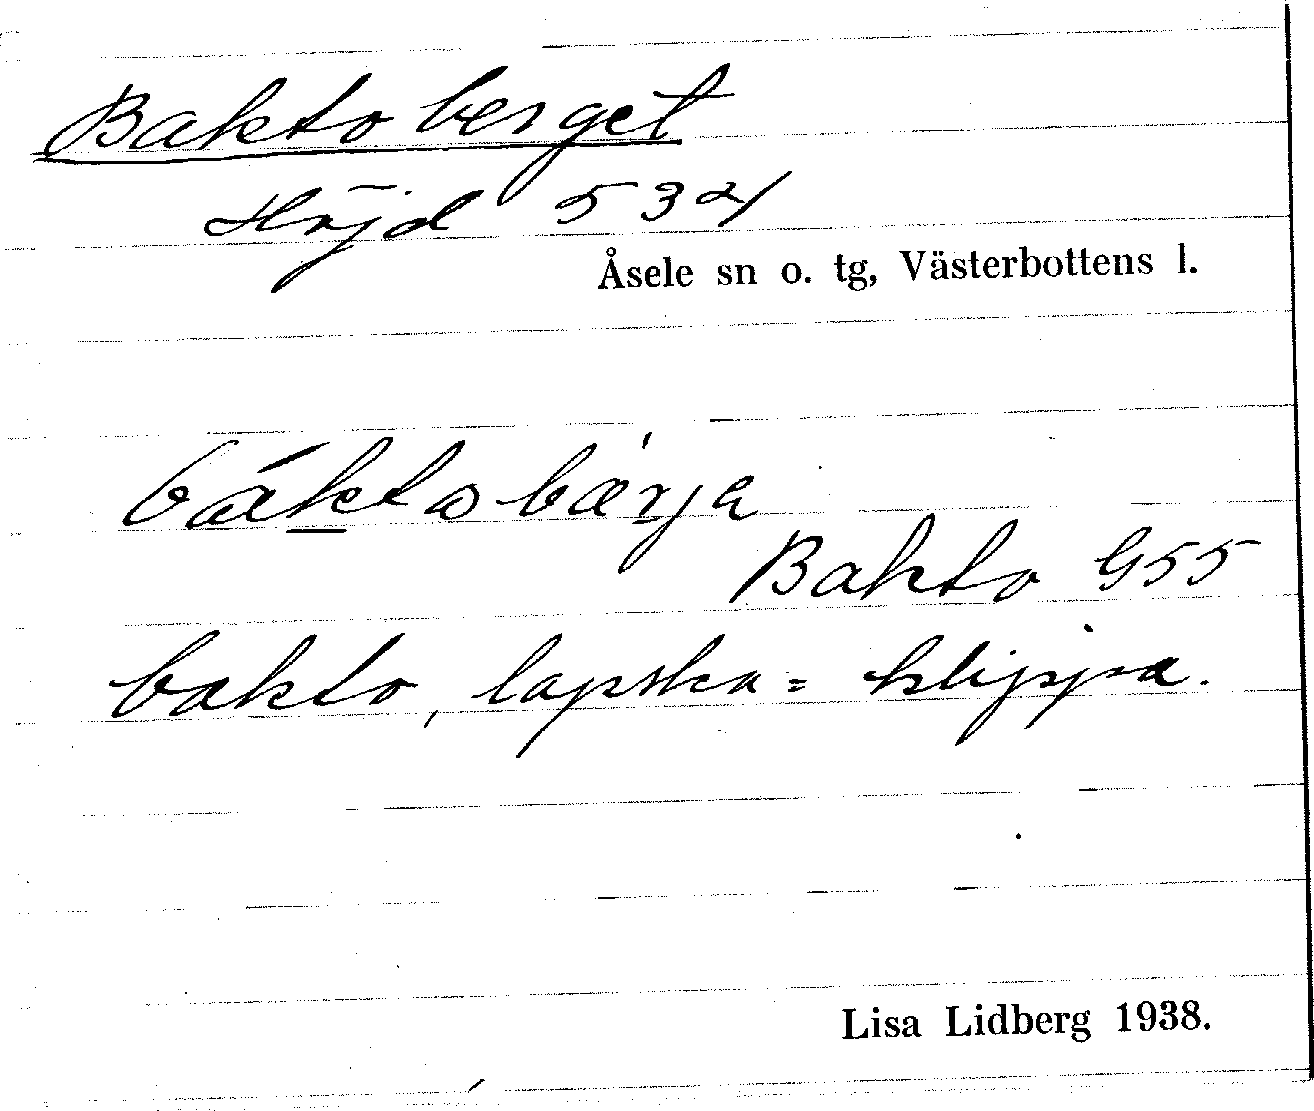 Baktoberget
Höjd 534
Åsele sn o. tg, Västerbottens l.
báktobærja
Bakto G55
bakto, lapska = klippa.
Lisa Lidberg 1938.